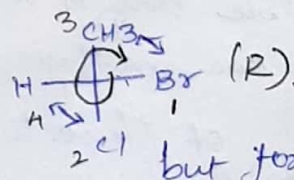 3 CH3
H Br (R).
4 1
2 Cl
but for